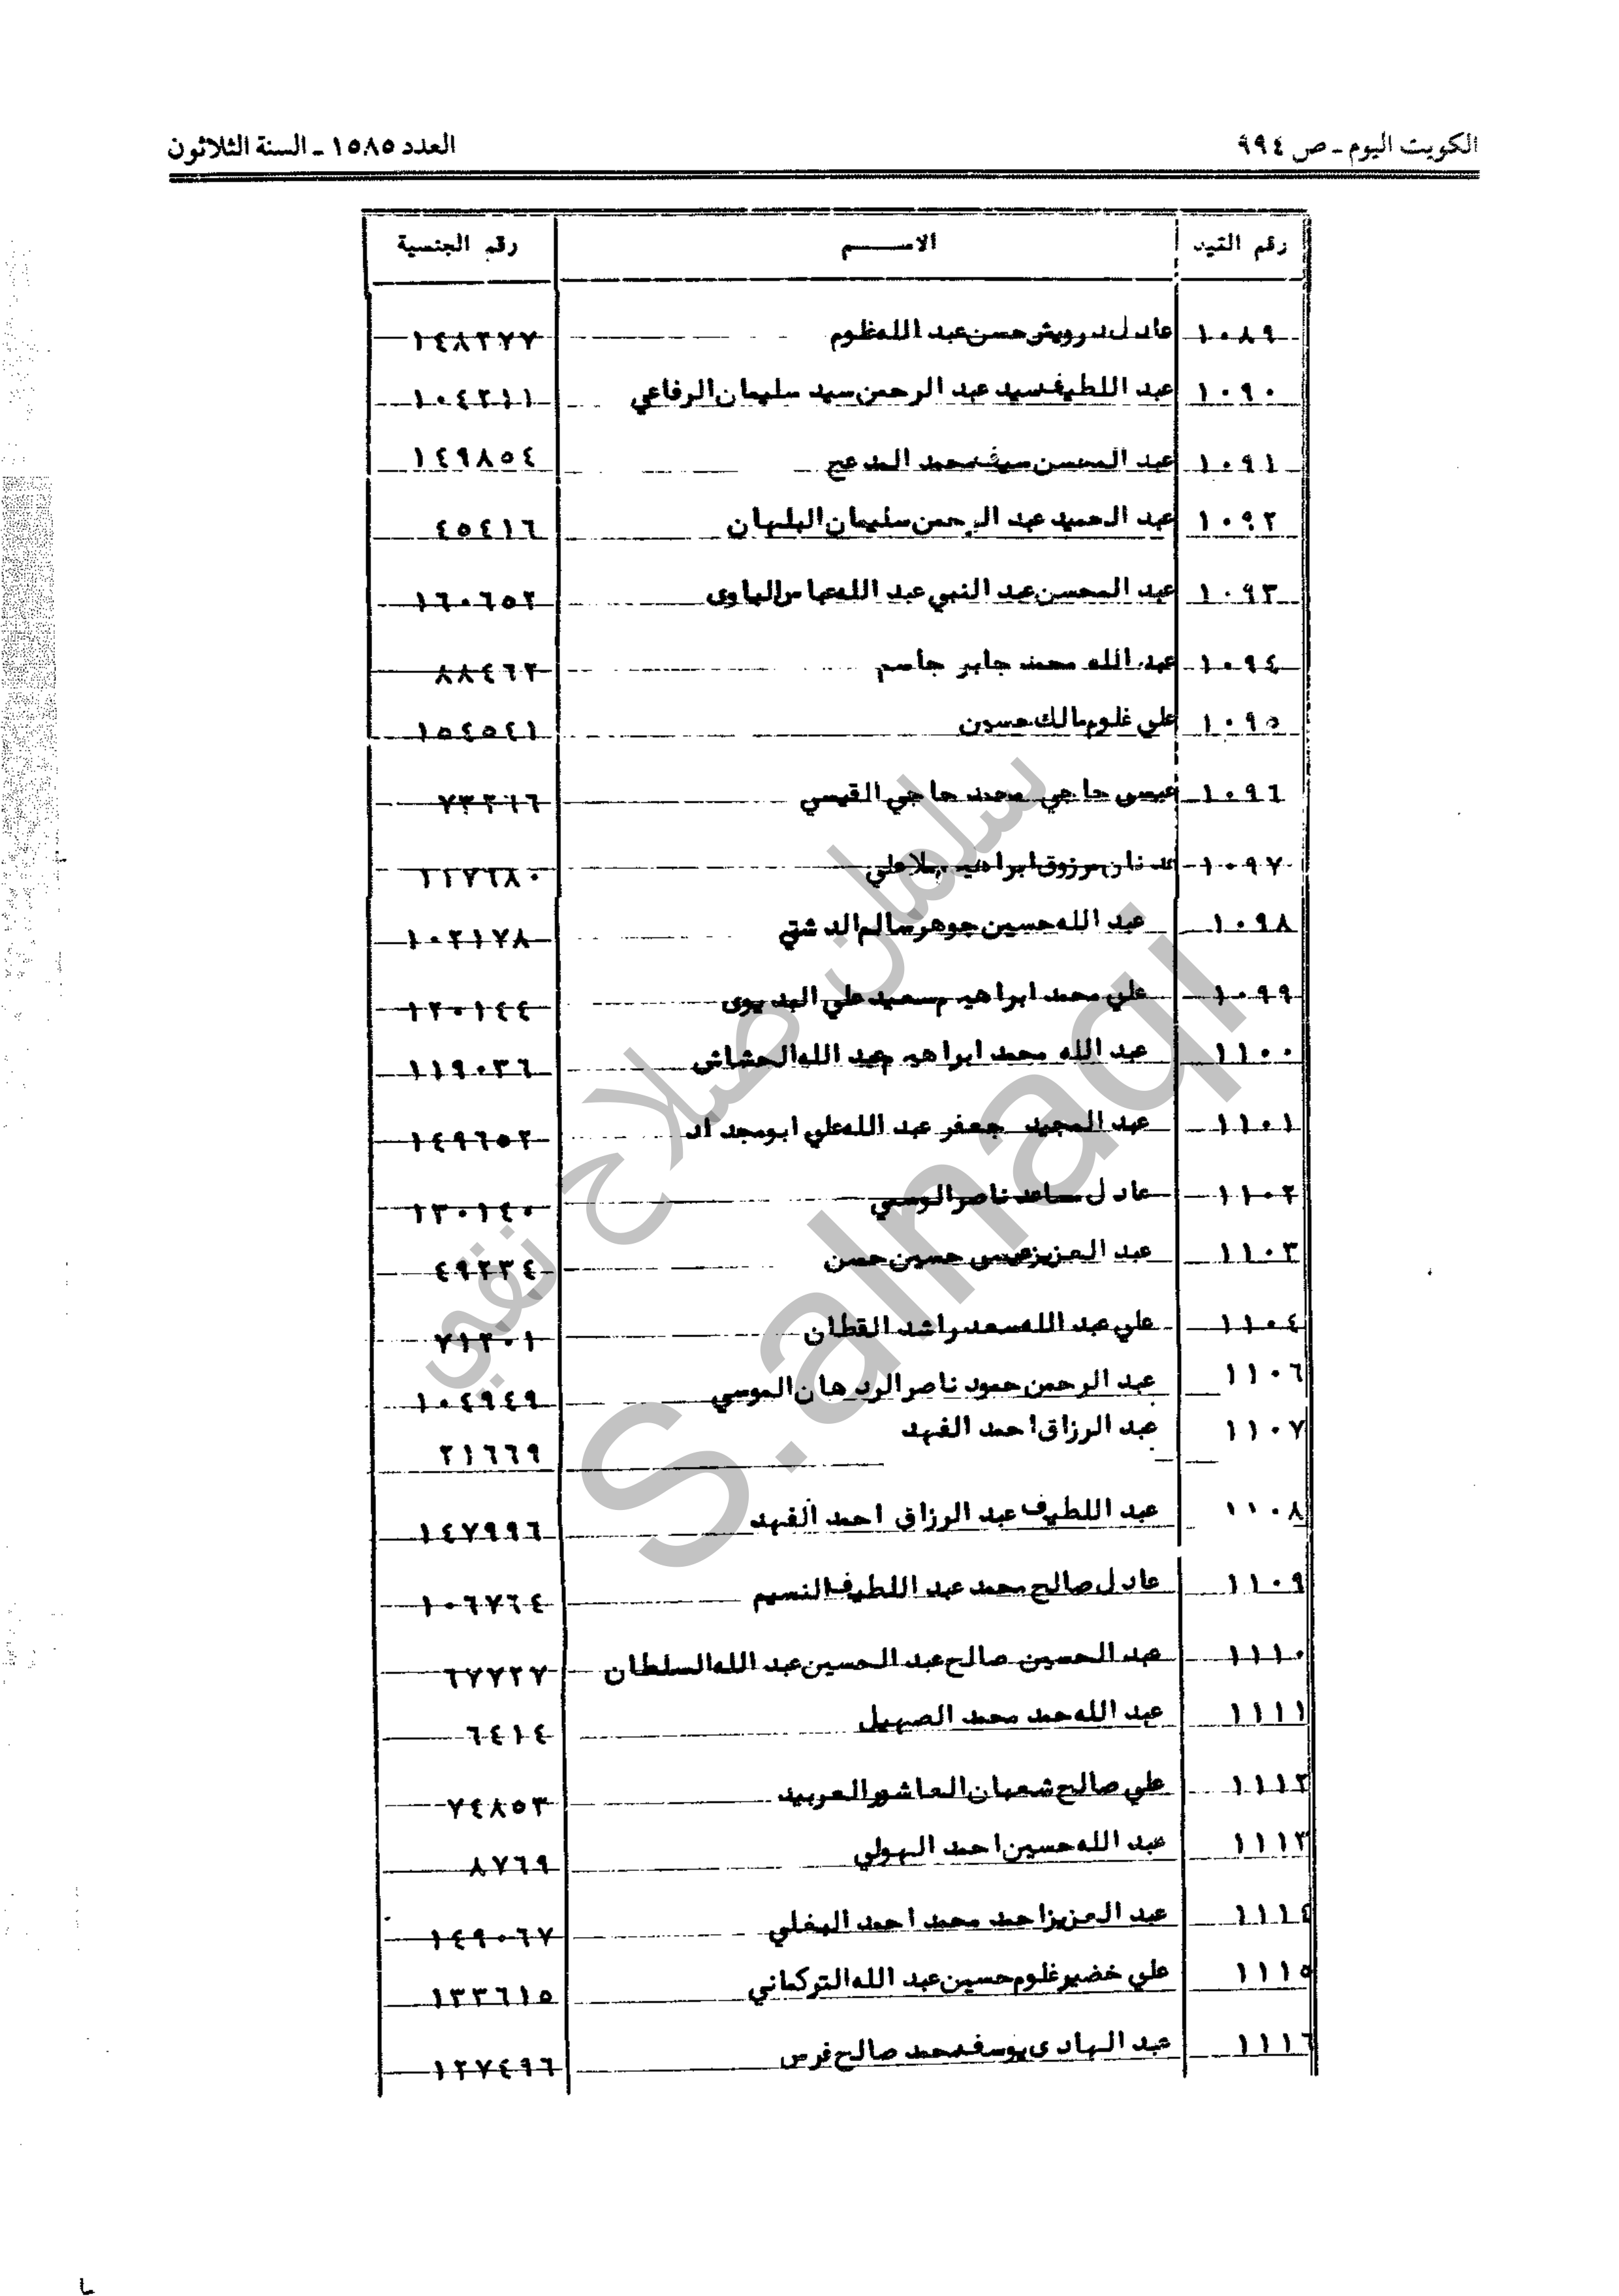 الكويت اليوم ـ ص ٩٩٤ العدد ١٥٨٥ ـ السنة الثلاثون
رقم القيد الاســـــم رقم الجنسية
١٠٨٩ عادل درويش حسن عبد الله غلوم ١٤٨٢٧٧
١٠٩٠ عبد اللطيف سيد عبد الرحمن سيد سليمان الرفاعي ١٠٤٢١١
١٠٩١ عبد المحسن سيف محمد المدعج ١٤٩٨٥٤
١٠٩٢ عبد الحميد عبد الرحمن سليمان البلهان ٤٥٤١٦
١٠٩٣ عبد المحسن عبد النبي عبد الله عباس الباوى ١٦٠٦٥٢
١٠٩٤ عبد الله محمد جابر جاسم ٨٨٤٦٢
١٠٩٥ علي غلوم مالك حسين ١٥٤٥٤١
١٠٩٦ عيسى حاجي محمد حاجي القيسي ٧٣٢١٦
١٠٩٧ عدنان مرزوق ابراهيم ملا علي ١١٧٦٨٠
١٠٩٨ عبد الله حسين جوهر سالم الدشتي ١٠٢١٧٨
١٠٩٩ علي محمد ابراهيم سعيد علي البديوى ١٢٠١٤٤
١١٠٠ عبد الله محمد ابراهيم عبد الله الحشاش ١١٩٠٣٦
١١٠١ عبد المجيد جعفر عبد الله علي ابومجداد ١٤٩٦٥٢
١١٠٢ عادل مساعد ناصر الوسمي ١٣٠١٤٠
١١٠٣ عبد العزيز عيسى حسين حسن ٤٩٢٣٤
١١٠٤ علي عبد الله سعد راشد القطان ٧١٢٠١
١١٠٦ عبد الرحمن حمود ناصر الردهان الموسي ١٠٤٩٤٩
١١٠٧ عبد الرزاق احمد الفهد ٢١٦٦٩
١١٠٨ عبد اللطيف عبد الرزاق احمد الفهد ١٤٧٩٩٦
١١٠٩ عادل صالح محمد عبد اللطيف النسيم ١٠٦٧٦٤
١١١٠ عبد الحسين صالح عبد الحسين عبد الله السلطان ٦٧٧٢٧
١١١١ عبد الله حمد محمد الصهيل ٦٤١٤
١١١٢ علي صالح شعبان العاشور العربيد ٧٤٨٥٣
١١١٣ عبد الله حسين احمد الهولي ٨٧٦٩
١١١٤ عبد العزيز احمد محمد احمد البغلي ١٤٩٠٦٧
١١١٥ علي خضير غلوم حسين عبد الله التركماني ١٣٣٦١٥
١١١٦ عبد الهادى يوسف محمد صالح غرس ١٢٧٤٩٦
سلمان صلاح نقي
S.alnaqi